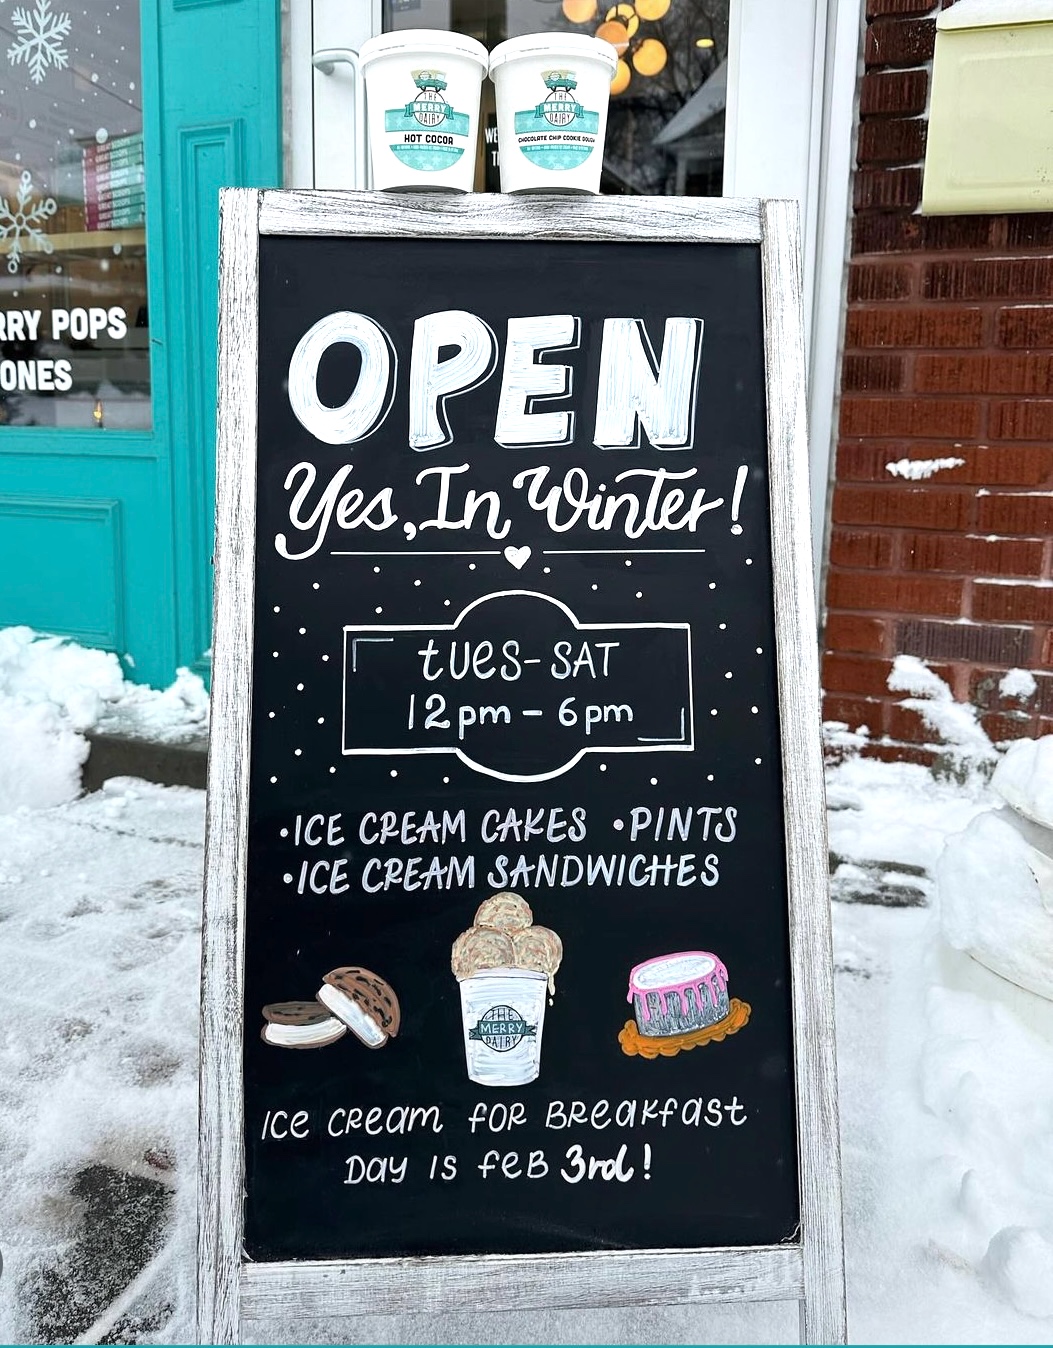 THE
MERRY
DAIRY
HOT COCOA
THE
MERRY
DAIRY
CHOCOLATE CHIP COOKIE DOUGH
WE
T
RRY POPS
ONES
OPEN
Yes, In Winter!
tues-SAT
12pm - 6pm
•ICE CREAM CAKES •PINTS
•ICE CREAM SANDWICHES
THE
MERRY
DAIRY
Ice cream for Breakfast
Day is feB 3rd!